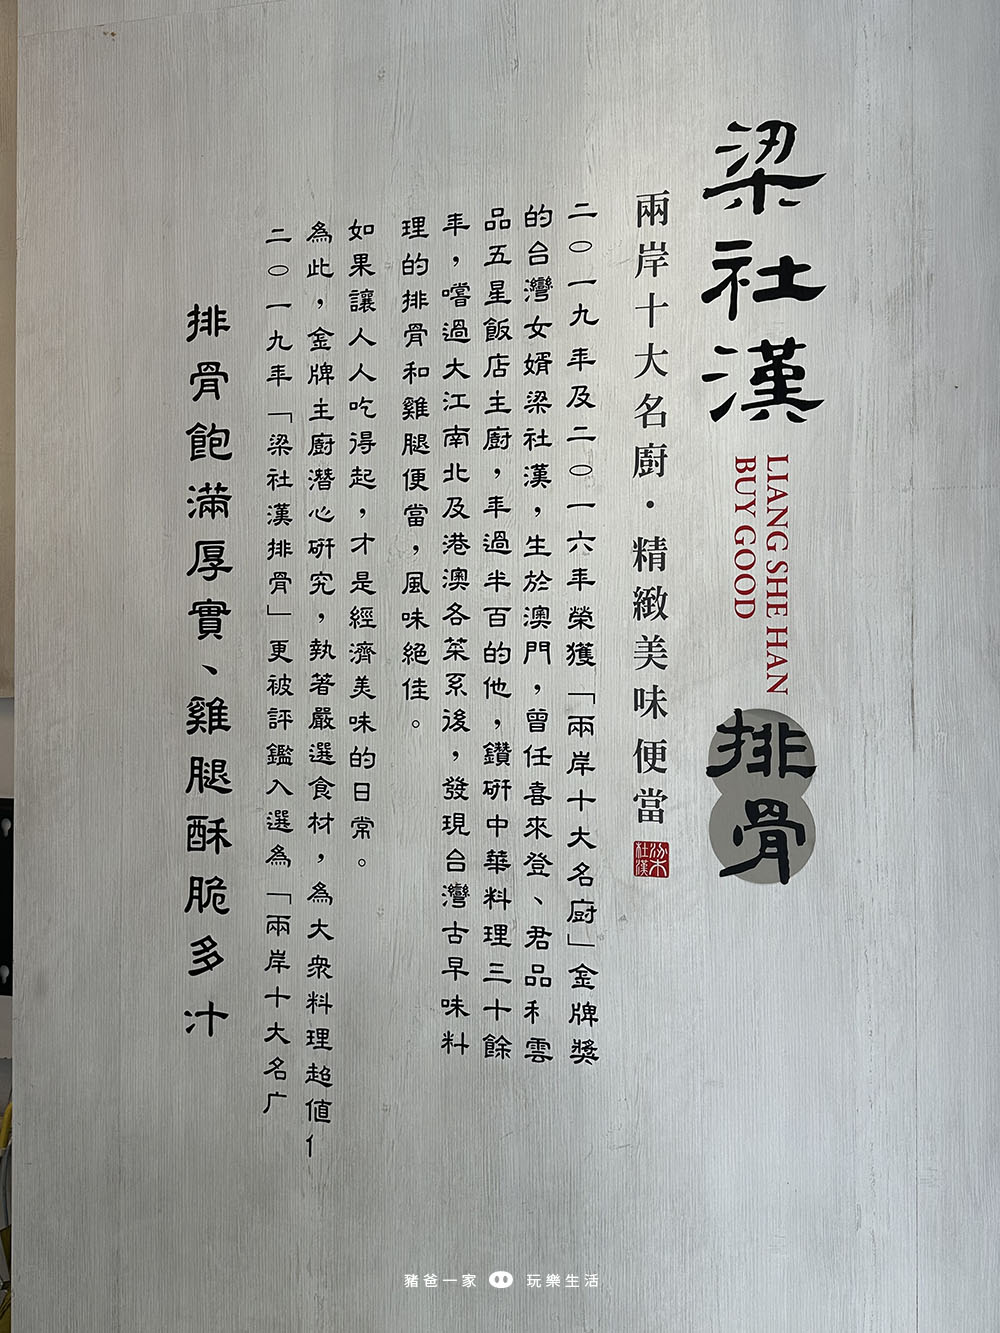 梁社漢
LIANG SHE HAN
BUY GOOD
排骨
兩岸十大名廚・精緻美味便當
梁社漢
二〇一九年及二〇一六年榮獲「兩岸十大名廚」金牌獎
的台灣女婿梁社漢，生於澳門，曾任喜來登、君品和雲
品五星飯店主廚，年過半百的他，鑽研中華料理三十餘
年，嚐過大江南北及港澳各菜系後，發現台灣古早味料
理的排骨和雞腿便當，風味絕佳。
如果讓人人吃得起，才是經濟美味的日常。
為此，金牌主廚潛心研究，執著嚴選食材，為大眾料理超值亻
二〇一九年「梁社漢排骨」更被評鑑入選為「兩岸十大名广
排骨飽滿厚實、雞腿酥脆多汁
豬爸一家 玩樂生活